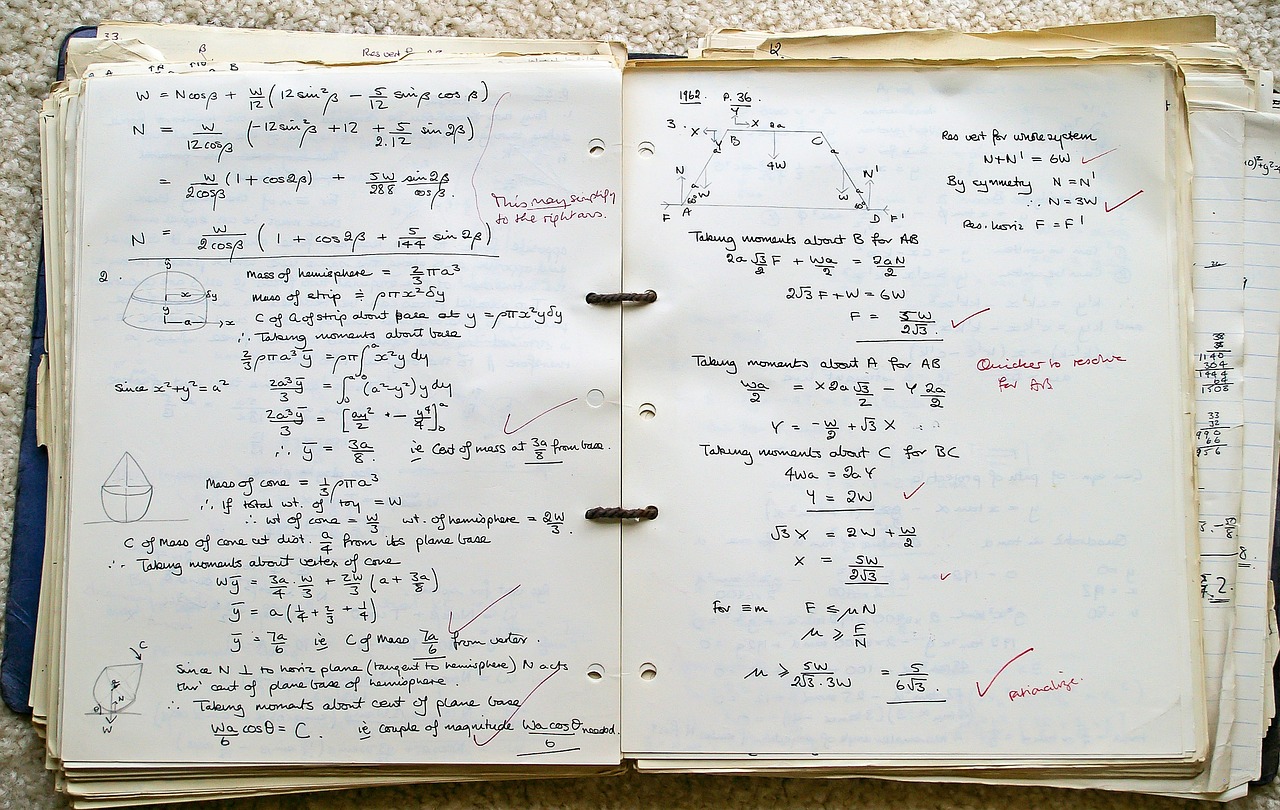 33.
β
Res vert
B
W = N cos β + W/12 (12 sin²β − 5/12 sin β cos β)
N = W/12cosβ (−12 sin²β + 12 + 5/2.12 sin 2β)
= W/2cosβ (1 + cos 2β) + 5W/288 sin 2β/cos β.
This may simplify
to the right ans.
N = W/2cosβ (1 + cos 2β + 5/144 sin 2β)
2.
Mass of hemisphere = 2/3 πa³
Mass of strip ≑ ρπx²δy
C of G of strip about base at y = ρπx²yδy
∴ Taking moments about base
2/3 ρπa³ȳ = ρπ∫₀ᵃ x²y dy
Since x²+y²=a² 2a³ȳ/3 = ∫₀ᵃ (a²−y²) y dy
2a³ȳ/3 = [ay²/2 + − y⁴/4]₀ᵃ
∴ ȳ = 3a/8 ie Cent of mass at 3a/8 from base.
Mass of cone = 1/3 ρπa³
∴ If total wt. of toy = W
∴ wt of cone = W/3 wt. of hemisphere = 2W/3.
C of Mass of cone at dist. a/4 from its plane base
∴ Taking moments about vertex of cone
Wȳ = 3a/4 · W/3 + 2W/3 (a + 3a/8)
ȳ = a(1/4 + 2/3 + 1/4)
ȳ = 7a/6 ie C of Mass 7a/6 from vertex.
C
N
W
θ
Since N ⊥ to horiz plane (tangent to hemisphere) N acts
thro' cent of plane base of hemisphere.
∴ Taking moments about cent of plane base
Wa/6 cos θ = C. ie couple of magnitude Wa cos θ/6 needed.
12.
1962. P. 36.
3.
X Y X 2a
Y B C
a a
4W
N N'
a W W a
60° 60°
F A D F'
Res vert for whole system
N+N' = 6W
By symmetry N = N'
∴ N = 3W
Res. horiz F = F'
Taking moments about B for AB
2a √3/2 F + Wa/2 = 2aN/2
2√3 F + W = 6W
F = 5W/2√3.
Taking moments about A for AB
Quicker to resolve
for AB
Wa/2 = X 2a √3/2 − Y 2a/2
Y = −W/2 + √3 X
Taking moments about C for BC
4Wa = 2aY
Y = 2W
√3 X = 2W + W/2
X = 5W/2√3
For ≡m F ≤ μN
μ ≥ F/N
μ ≥ 5W/2√3.3W = 5/6√3.
rationalize.
38
38
1140
304
1444
64
1508
33
32
990
66
956